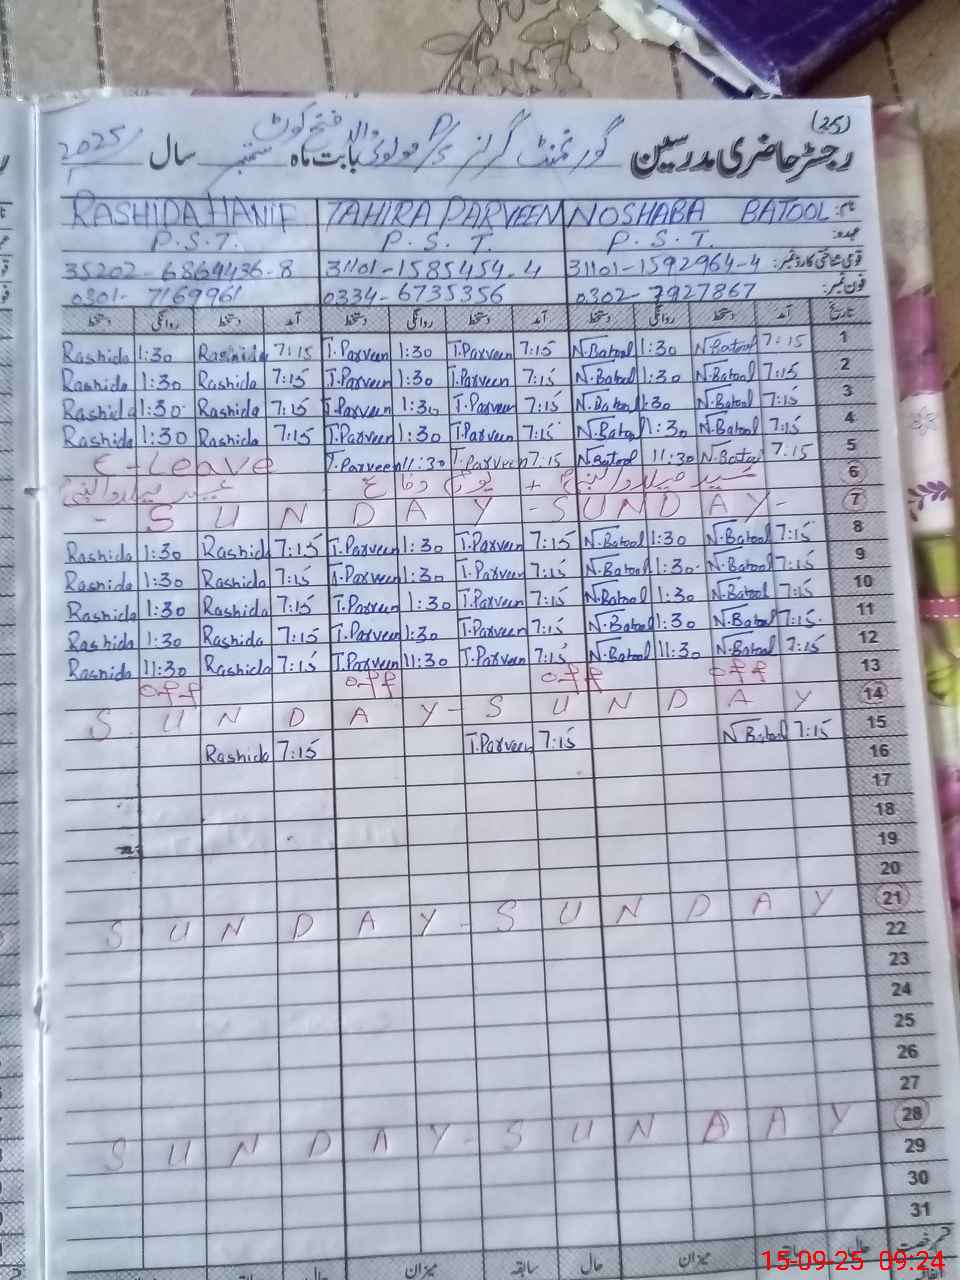 (25)
رجسٹر حاضری مدرسین گورنمنٹ گرلز P/S مولوی والہ فتح کوٹ بابت ماہ ستمبر سال 2025/
RASHIDA HANIF TAHIRA PARVEEN NOSHABA BATOOL نام:
P.S.T. P.S.T. P.S.T. عہدہ:
35202-6869436-8 31101-1585454-4 31101-1592964-4 قومی شناختی کارڈ نمبر:
0301-7169961 0334-6735356 0302-7927867 فون نمبر:
دستخط روانگی دستخط آمد دستخط روانگی دستخط آمد دستخط روانگی دستخط آمد تاریخ
Rashida 1:30 Rashida 7:15 T.Parveen 1:30 T.Parveen 7:15 N.Batool 1:30 N.Batool 7:15 1
Rashida 1:30 Rashida 7:15 T.Parveen 1:30 T.Parveen 7:15 N.Batool 1:30 N.Batool 7:15 2
Rashida 1:30 Rashida 7:15 T.Parveen 1:30 T.Parveen 7:15 N.Batool 1:30 N.Batool 7:15 3
Rashida 1:30 Rashida 7:15 T.Parveen 1:30 T.Parveen 7:15 N.Batool 1:30 N.Batool 7:15 4
C-Leave T.Parveen 11:30 T.Parveen 7:15 N.Batool 11:30 N.Batool 7:15 5
عید میلادالنبیؐ + یوم دفاع عید میلادالنبیؐ 6
- S U N D A Y - S U N D A Y - 7
Rashida 1:30 Rashida 7:15 T.Parveen 1:30 T.Parveen 7:15 N.Batool 1:30 N.Batool 7:15 8
Rashida 1:30 Rashida 7:15 T.Parveen 1:30 T.Parveen 7:15 N.Batool 1:30 N.Batool 7:15 9
Rashida 1:30 Rashida 7:15 T.Parveen 1:30 T.Parveen 7:15 N.Batool 1:30 N.Batool 7:15 10
Rashida 1:30 Rashida 7:15 T.Parveen 1:30 T.Parveen 7:15 N.Batool 1:30 N.Batool 7:15 11
Rashida 11:30 Rashida 7:15 T.Parveen 11:30 T.Parveen 7:15 N.Batool 11:30 N.Batool 7:15 12
off off off off 13
S U N D A Y - S U N D A Y 14
Rashida 7:15 T.Parveen 7:15 N.Batool 7:15 15
16
17
18
19
20
S U N D A Y - S U N D A Y 21
22
23
24
25
26
27
S U N D A Y - S U N D A Y 28
29
30
31
میزان حال سابقہ میزان حال سابقہ
15-09-25 09:24